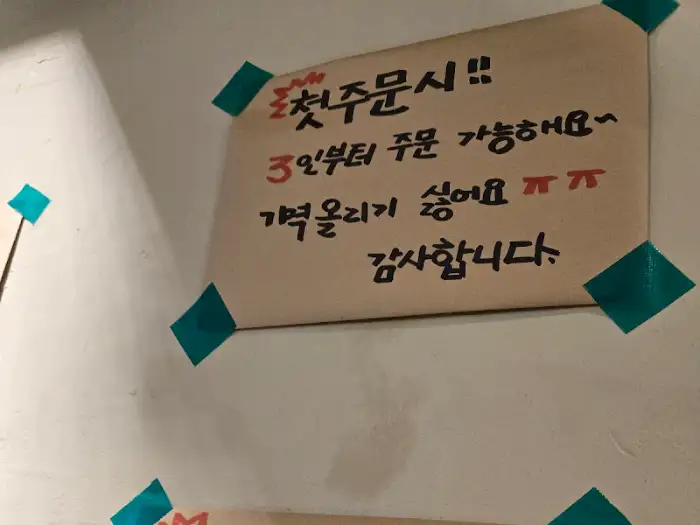 첫주문시!!
3인부터 주문 가능해요~
가격올리기 싫어요 ㅠㅠ
감사합니다.